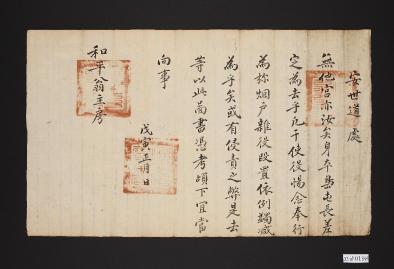 安世道處
無他宮亦汝矣身卒㐣屯長差
定爲去乎凡干使役惕念奉行
爲㢱烟戶雜役段置依例蠲減
爲乎矣或有侵責之弊是去
等以此啚書憑考頉下宜當
向事
戊寅正月 日
和平翁主房